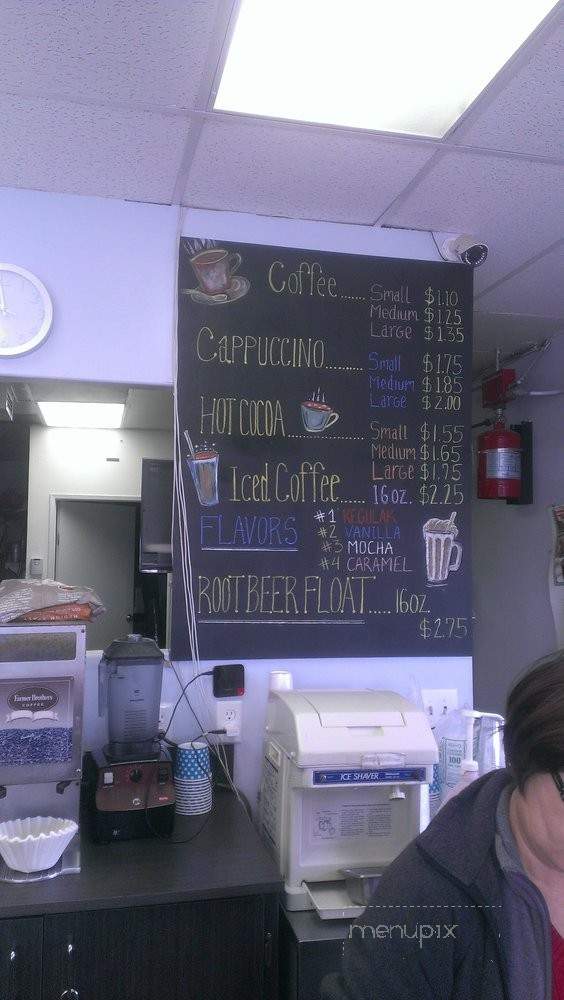 Coffee...... Small $1.10
Medium $1.25
Large $1.35
CAPPUCCINO........ Small $1.75
Medium $1.85
Large $2.00
HOT COCOA ................ Small $1.55
Medium $1.65
Large $1.95
Iced Coffee..... 16oz. $2.25
FLAVORS #1 REGULAR
#2 VANILLA
#3 MOCHA
#4 CARAMEL
ROOTBEER FLOAT..... 16oz.
$2.75
Farmer Brothers
COFFEE
ICE SHAVER
100
menupix